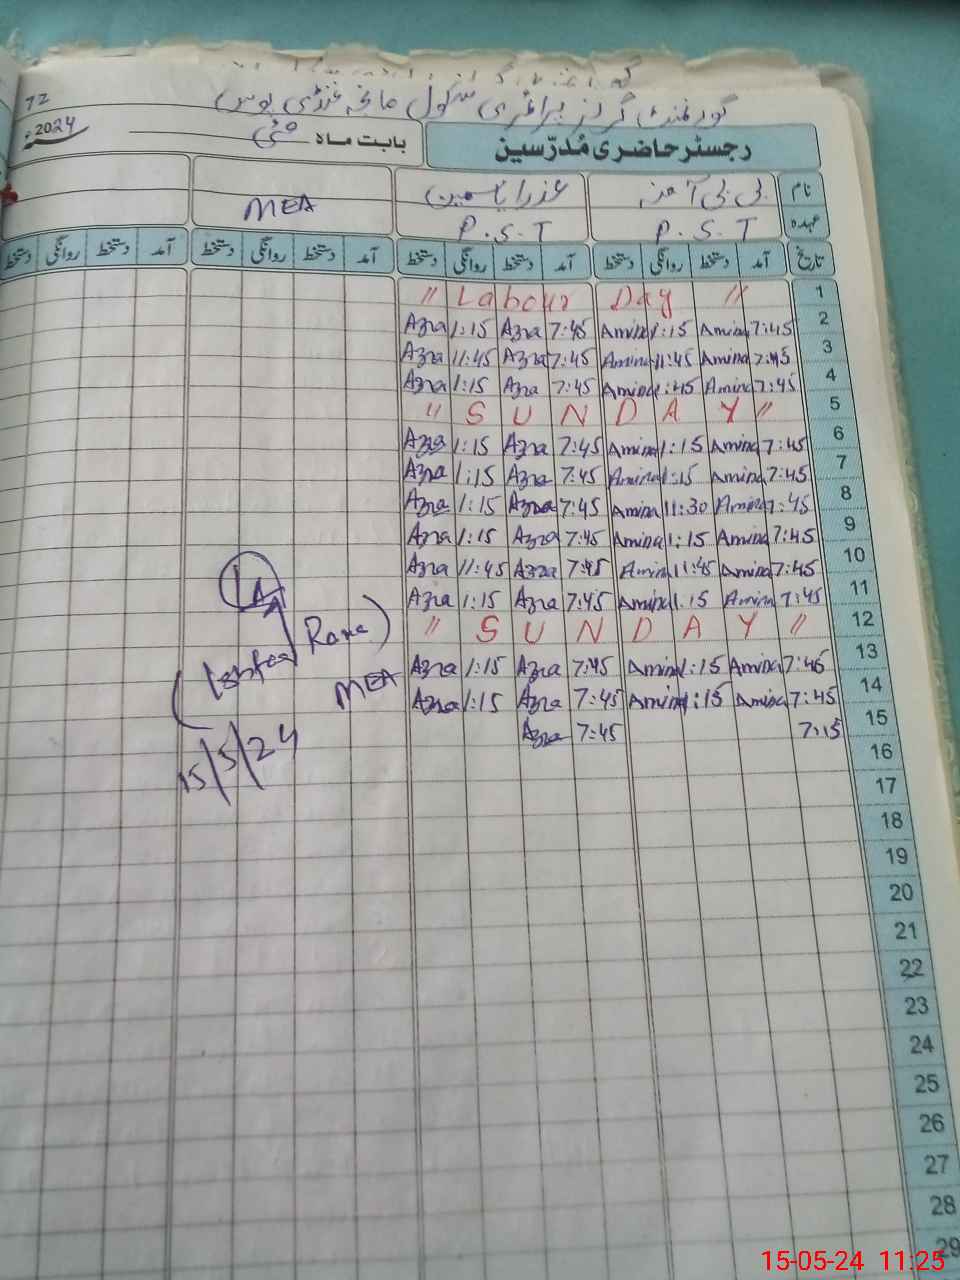 گورنمنٹ گرلز پرائمری سکول
72
رجسٹر حاضری مُدرّسین
بابت ماہ مئی 2024ء
نام بی بی آمنہ عذرا یاسمین
MEA
عہدہ P.S.T P.S.T
تاریخ آمد دستخط روانگی دستخط آمد دستخط روانگی دستخط آمد دستخط روانگی دستخط آمد دستخط روانگی دستخط
" Labour Day " 1
Azra 1:15 Azra 7:45 Amina 1:15 Amina 7:45 2
Azra 11:45 Azra 7:45 Amina 11:45 Amina 7:45 3
Azra 1:15 Azra 7:45 Amina 1:45 Amina 7:45 4
" S U N D A Y " 5
Azra 1:15 Azra 7:45 Amina 1:15 Amina 7:45 6
Azra 1:15 Azra 7:45 Amina 1:15 Amina 7:45 7
Azra 1:15 Azra 7:45 Amina 11:30 Amina 7:45 8
Azra 1:15 Azra 7:45 Amina 1:15 Amina 7:45 9
Azra 11:45 Azra 7:45 Amina 11:45 Amina 7:45 10
Azra 1:15 Azra 7:45 Amina 1:15 Amina 7:45 11
" S U N D A Y " 12
Azra 1:15 Azra 7:45 Amina 1:15 Amina 7:45 13
MEA Azra 1:15 Azra 7:45 Amina 1:15 Amina 7:45 14
Azra 7:45 7:15 15
15/5/24
16
17
18
19
20
21
22
23
24
25
26
27
28
29
15-05-24 11:25